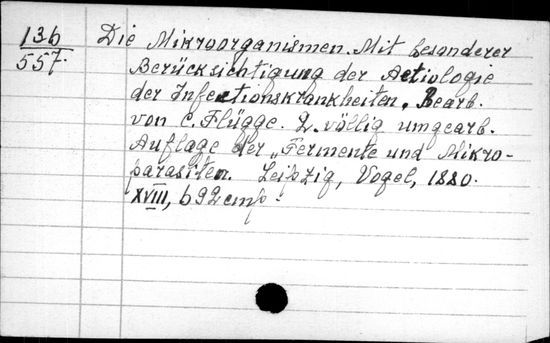 136
557.
Die Mikroorganismen. Mit besonderer
Berücksichtigung der Aetiologie
der Infectionskrankheiten. Bearb.
von C. Flügge. 2. völlig umgearb.
Auflage der „Fermente und Mikro-
parasiten. Leipzig, Vogel, 1880.
XVIII, 692 стр.